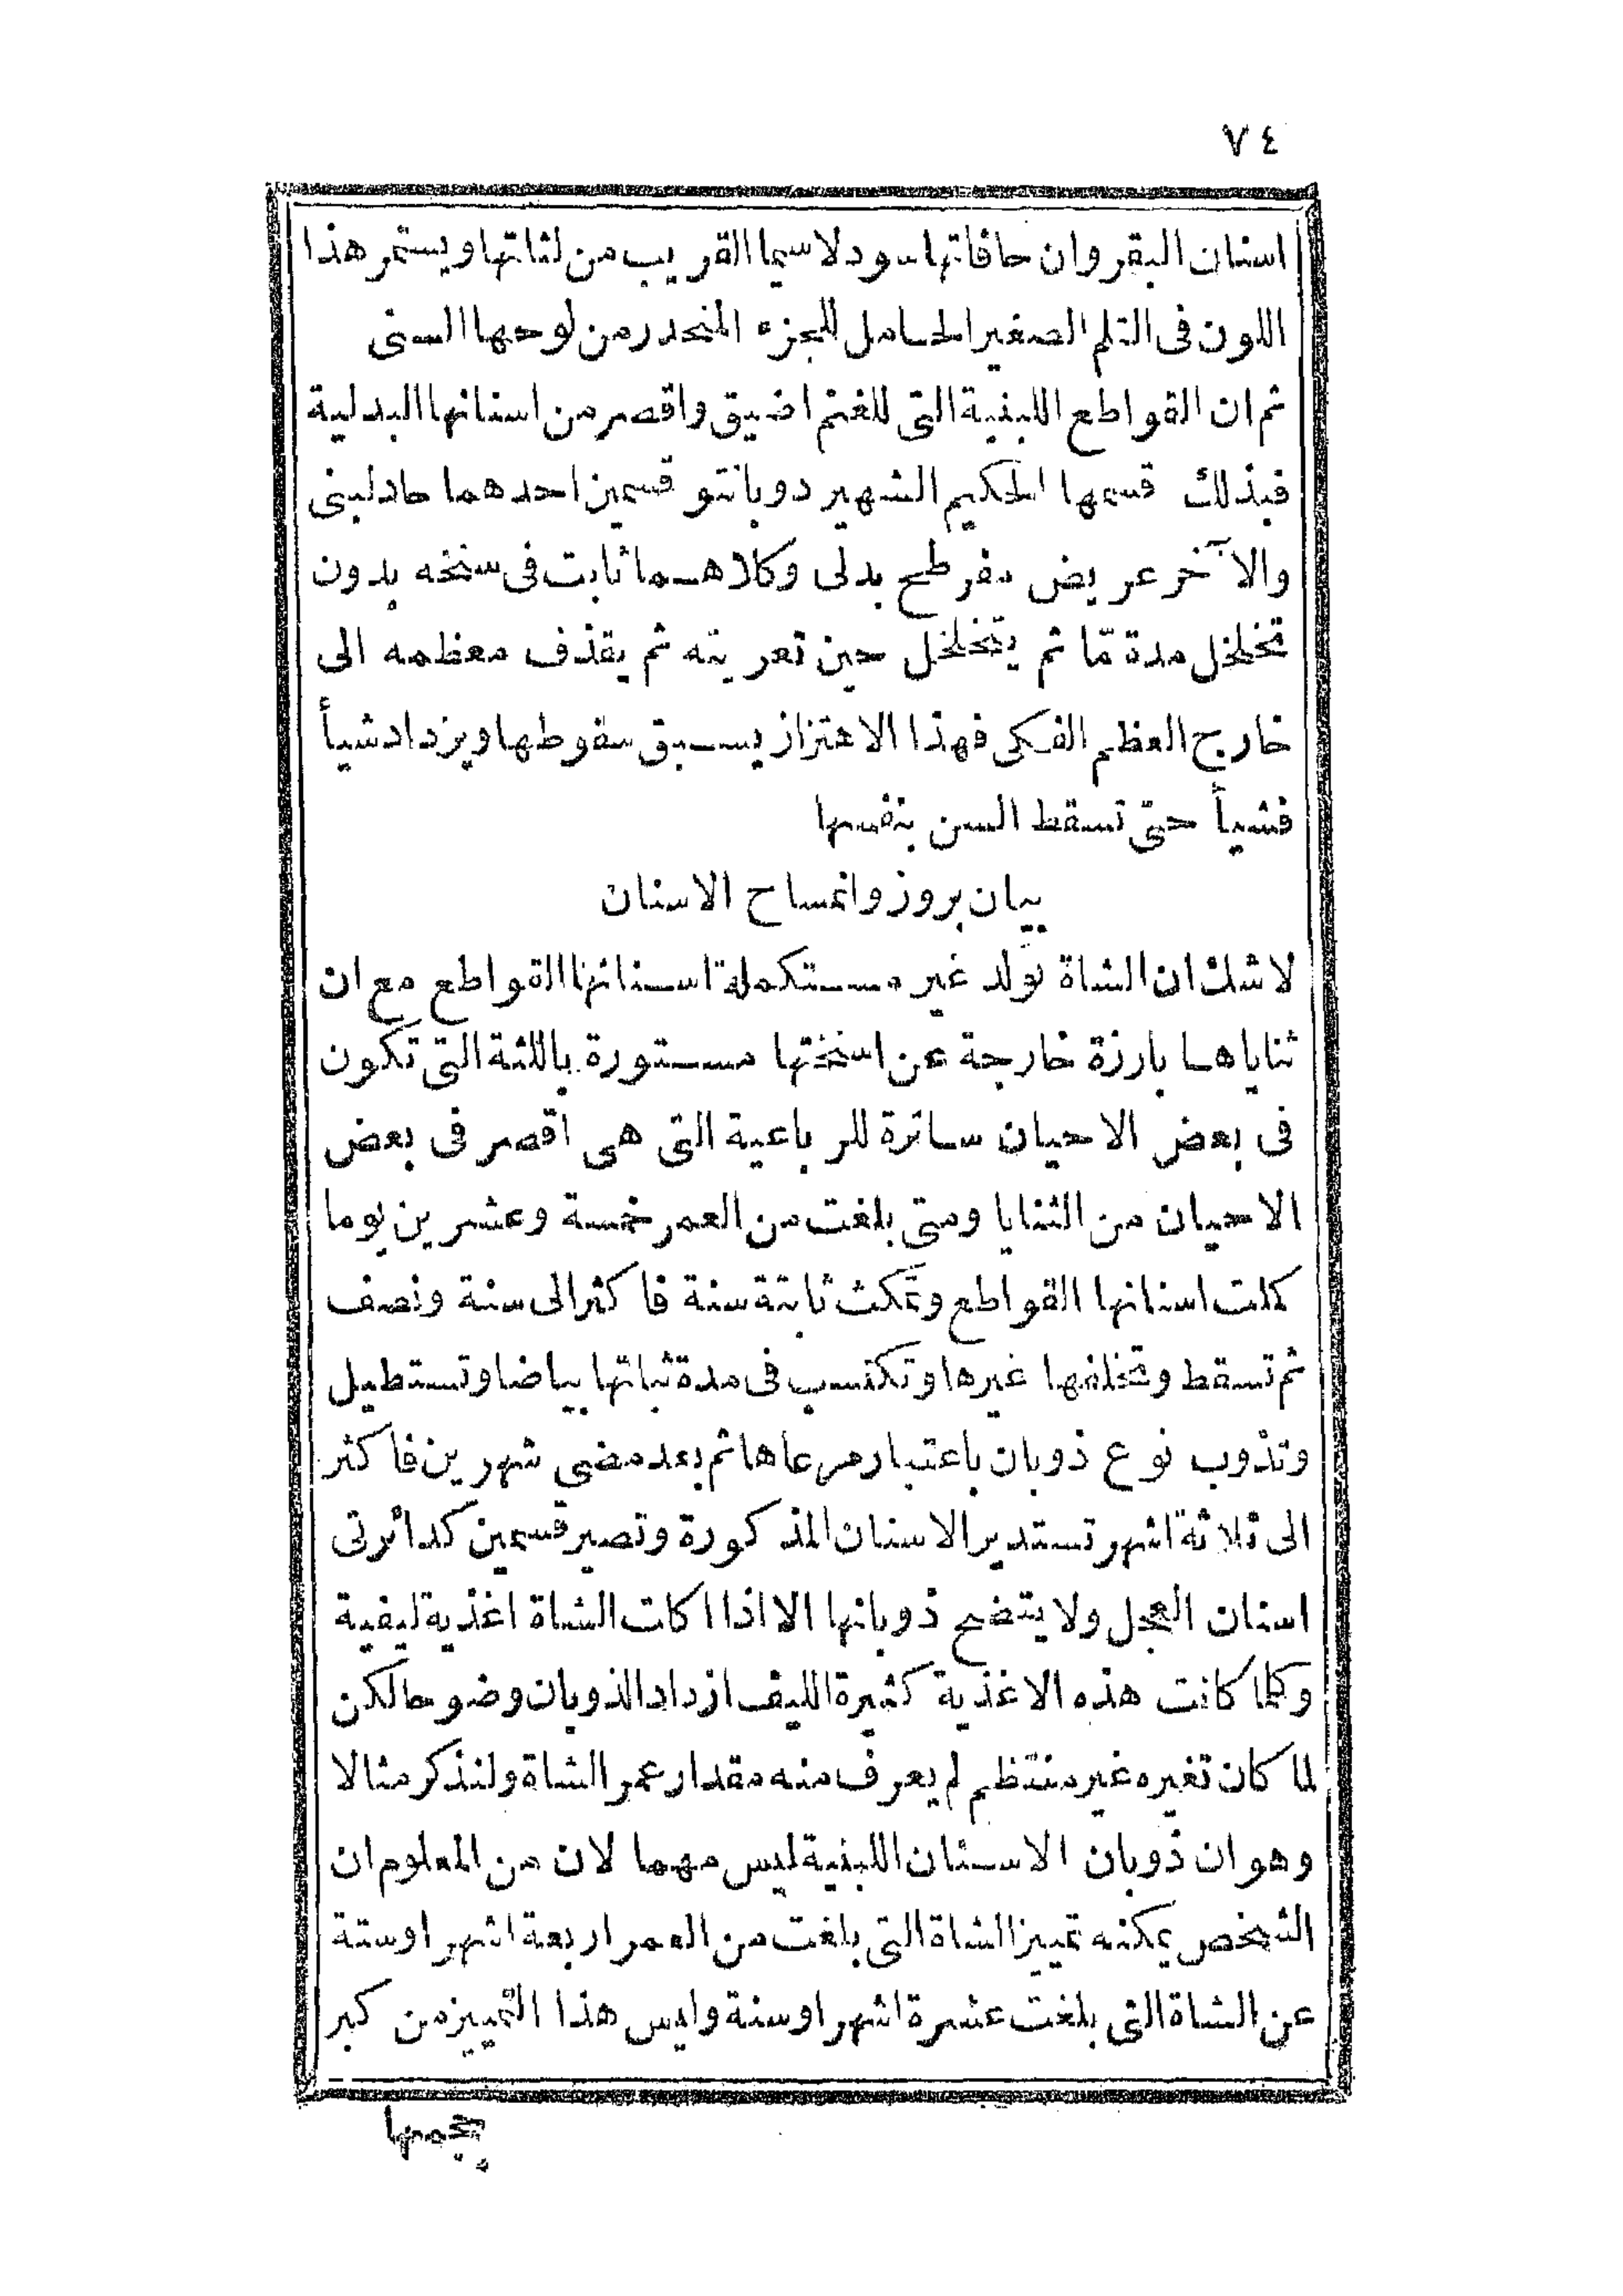 ٧٤
اسنان البقر وان حافاتها سود لا سيما القريب من لثاتها ويستمر هذا
اللون فى الثلم الصغير الحامل للجزء المنحدر من لوحها السنى
ثم ان القواطع اللبنية التى للغنم اضيق واقصر من اسنانها البدلية
فبذلك قسمها الحكيم الشهير دوبانتو قسمين احدهما حاد لبنى
والآخر عريض مفرطح بدلى وكلاهما ثابت فى سنخه بدون
تخلخل مدة مّا ثم يتخلخل حين تعريته ثم يقذف معظمه الى
خارج العظم الفكى فهذا الاهتزاز يسبق سقوطها ويزداد شيأ
فشيأ حتى تسقط السن بنفسها
بيان بروز وانمساح الاسنان
لا شك ان الشاة تولد غير مستكملة اسنانها القواطع مع ان
ثناياها بارزة خارجة عن اسنختها مستورة باللثة التى تكون
فى بعض الاحيان ساترة للرباعية التى هى اقصر فى بعض
الاحيان من الثنايا ومتى بلغت من العمر خمسة وعشرين يوما
كملت اسنانها القواطع وتمكث ثابتة سنة فاكثر الى سنة ونصف
ثم تسقط وتخلفها غيرها وتكتسب فى مدة ثباتها بياضا وتستطيل
وتذوب نوع ذوبان باعتبار مرعاها ثم بعد مضى شهرين فاكثر
الى ثلاثة اشهر تستدير الاسنان المذكورة وتصير قسمين كدائرتى
اسنان العجل ولا يتضح ذوبانها الا اذا اكلت الشاة اغذية ليفية
وكلما كانت هذه الاغذية كثيرة الليف ازداد الذوبان وضوحا لكن
لما كان تغيره غير منتظم لم يعرف منه مقدار عمر الشاة ولنذكر مثالا
وهو ان ذوبان الاسنان اللبنية ليس مهما لان من المعلوم ان
الشخص يمكنه تمييز الشاة التى بلغت من العمر اربعة اشهر او ستة
عن الشاة التى بلغت عشرة اشهر او سنة وليس هذا التمييز من كبر
بجمها